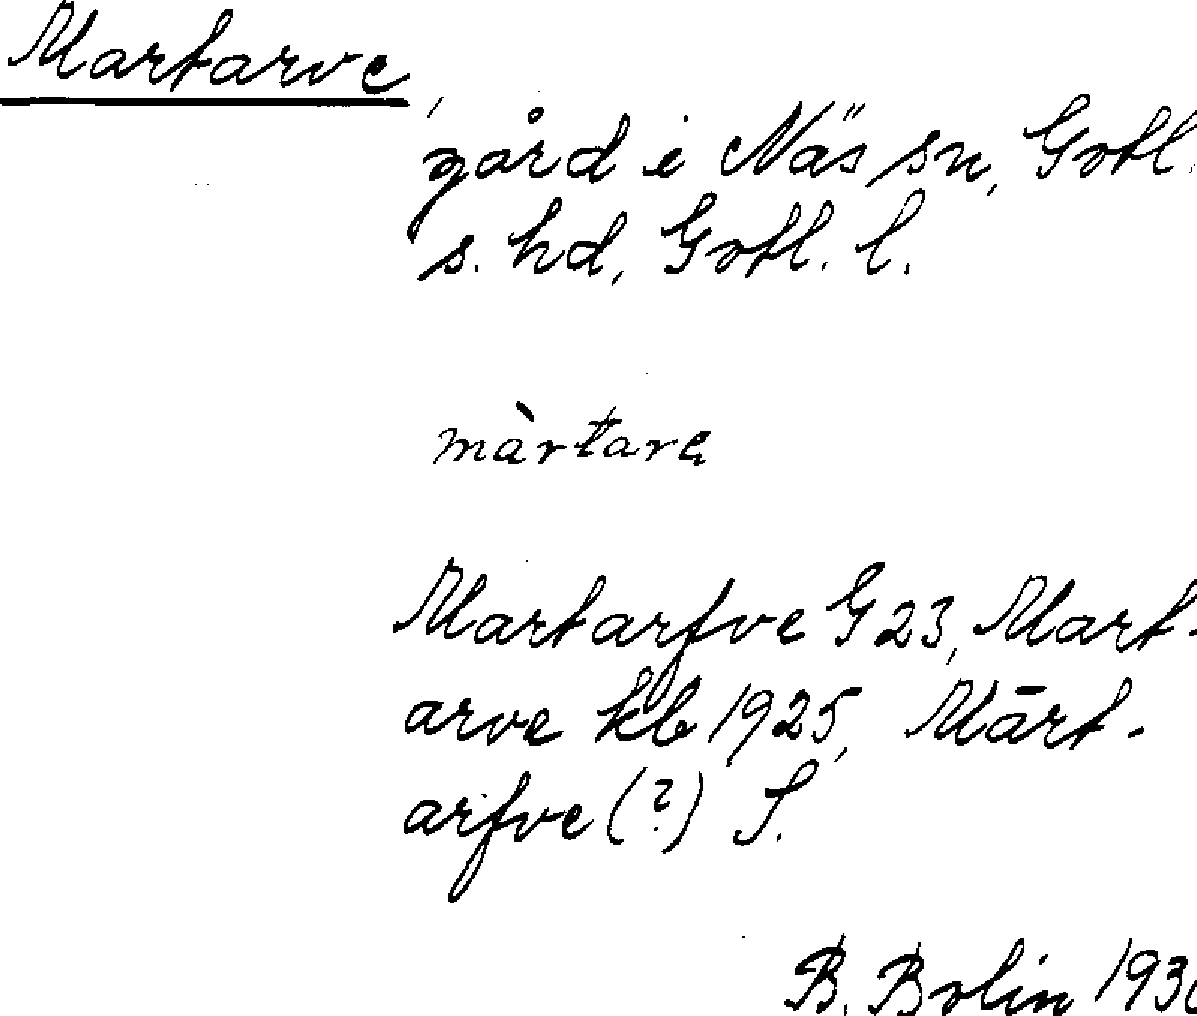 Martarve,
gård i Näs sn, Gotl.
s. hd, Gotl. l.
màrtarę
Martarfve G 23, Mart-
arve kb 1925, Mārt-
arfve (?) S.
B. Bolin 193